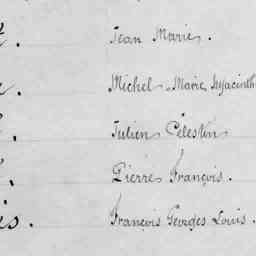 Jean Marie.
Michel Marie Hyacinth
Julien Célestin
Pierre François.
François Georges Louis.